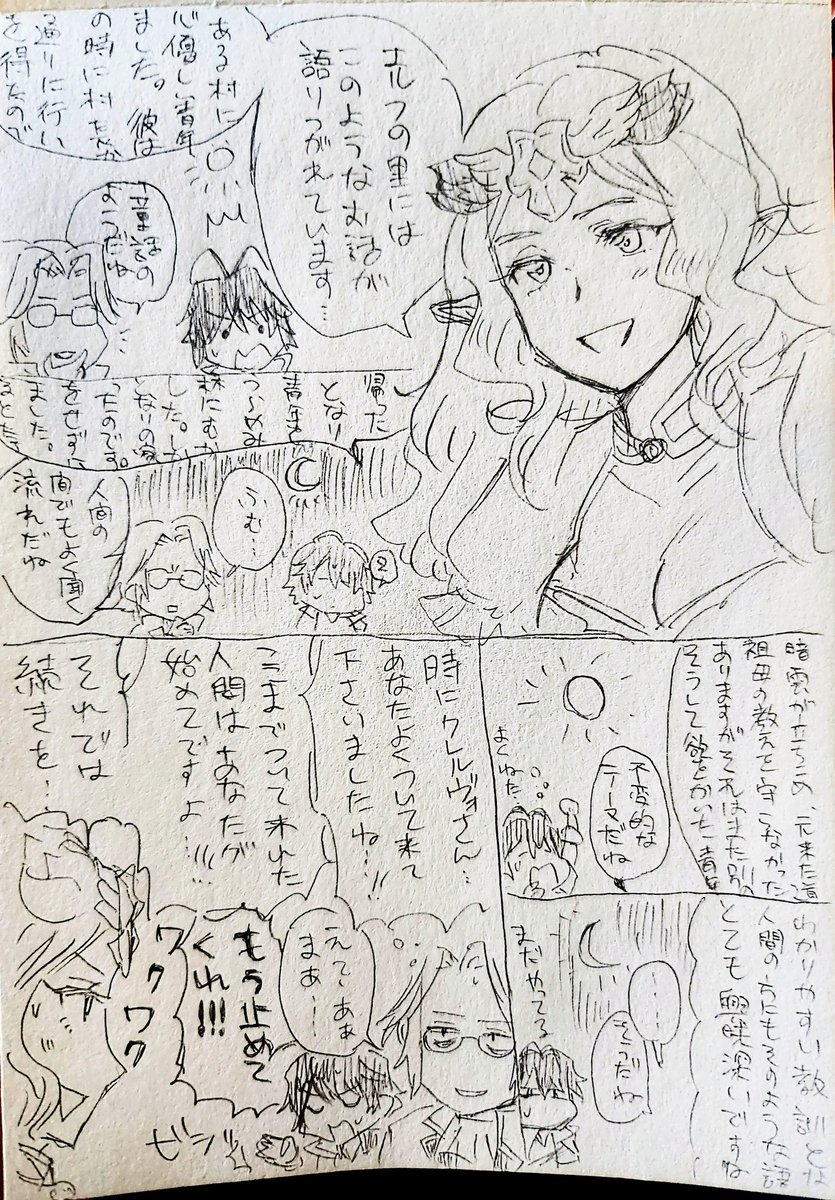 エルフの里には
このようなお話が
語りつがれています…
ある村に
心優しい青年
ました。彼は
の時に村長が
通りに行い
を得たので
童話の
ようだね
帰った
となり
青年
つい
森にむか
した。
となりの家
ったのです。
をせずに
ました。
うむ…
人間の
間でもよく聞く
流れだね
暗雲が立ちこめ、元来た道
祖母の教えを守らなかった
ありますがそれはまた別の
そうして欲をかいた青年
不変的な
テーマだね
よくねた
わかりやすい教訓とな
人間の方にもそのような話
とても興味深いですね
……
そうだね
まだやってる
時にクレルヴォさん…
あなたよくついて来て
下さいましたね…!!
ここまでついて来れた
人間はあなたが
始めてですよ…!!!!
それでは
続きを…
えて、あぁ
まぁ…
もう止めて
くれ!!!
ワクワク